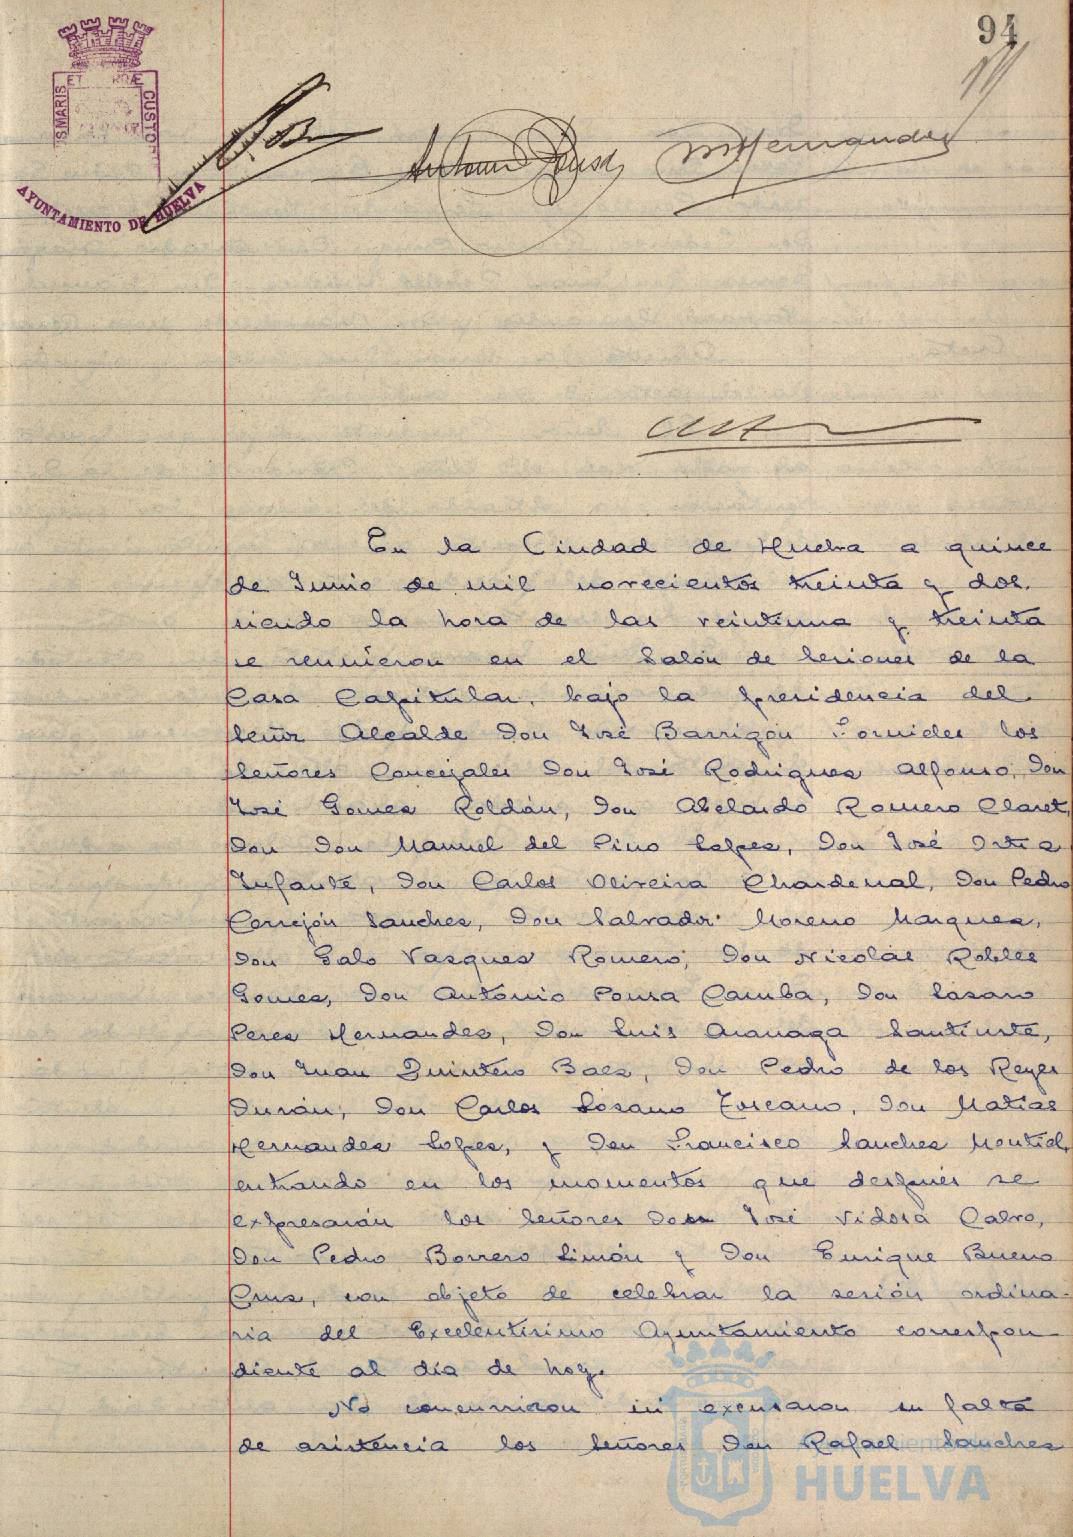 94
S. MARIS ET TERRÆ CUSTO
AYUNTAMIENTO DE HUELVA
Antonio Pousa
M Hernandez
En la Ciudad de Huelva a quince
de Junio de mil novecientos treinta y dos.
siendo la hora de las veintiuna y treinta
se reunieron en el Salón de Sesiones de la
Casa Capitular, bajo la presidencia del
Señor Alcalde Don José Barrigón Fornieles los
Señores Concejales Don José Rodrigues Alfonso, Don
José Gomes Roldán, Don Abelardo Romero Claret,
Don Don Manuel del Pino Lopes, Don José Ortis
Infante, Don Carlos Oliveira Chardenal, Don Pedro
Cerrejón Sanches, Don Salvador Moreno Marques,
Don Galo Vasques Romero, Don Nicolás Robles
Gomes, Don Antonio Pousa Camba, Don Lasaro
Peres Hernandes, Don Luis Aranaga Santiuste,
Don Juan Quintero Baes, Don Pedro de los Reyes
Durán, Don Carlos Losano Toscano, Don Matias
Hernandes Lopes, y Don Francisco Sanches Montiel,
entrando en los momentos que después se
expresarán los Señores Don José Vidosa Calvo,
Don Pedro Borrero Limón y Don Enrique Bueno
Crus, con objeto de celebrar la sesión ordina-
ria del Excelentisimo Ayuntamiento correspon
diente al día de hoy.
No concurrieron ni excusaron su falta
de asistencia los Señores Don Rafael Sanches
Ayuntamiento de
HUELVA